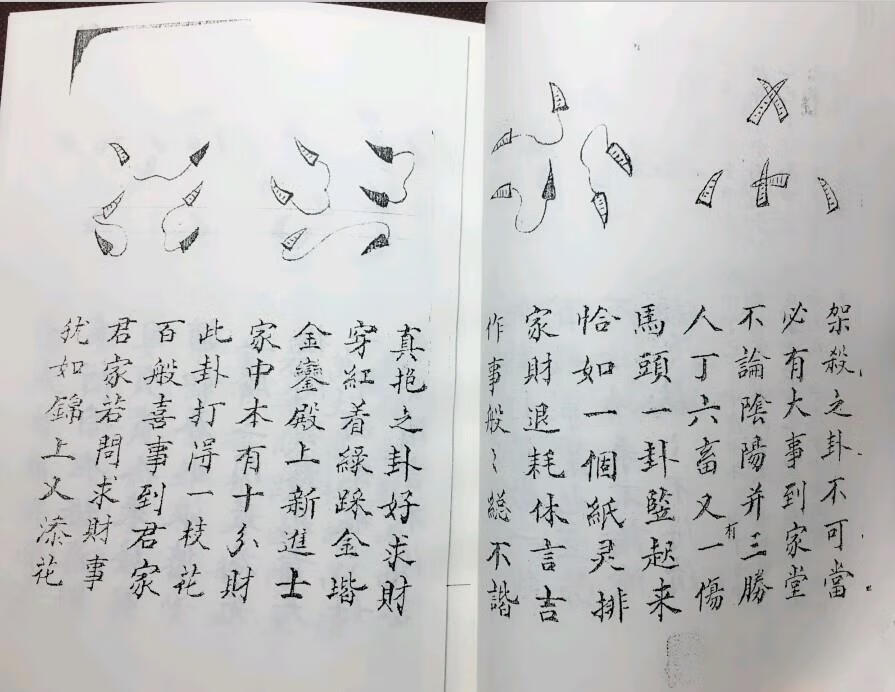 架殺之卦不可當
必有大事到家堂
不論陰陽并三勝
人丁六畜又有一傷
馬頭一卦竪起来
恰如一個紙灵排
家財退耗休言吉
作事般〻總不諧
真抱之卦好求財
穿紅着綠踩金堦
金鑾殿上新進士
家中本有十分財
此卦打淂一枝花
百般喜事到君家
君家若問求財事
犹如錦上又添花